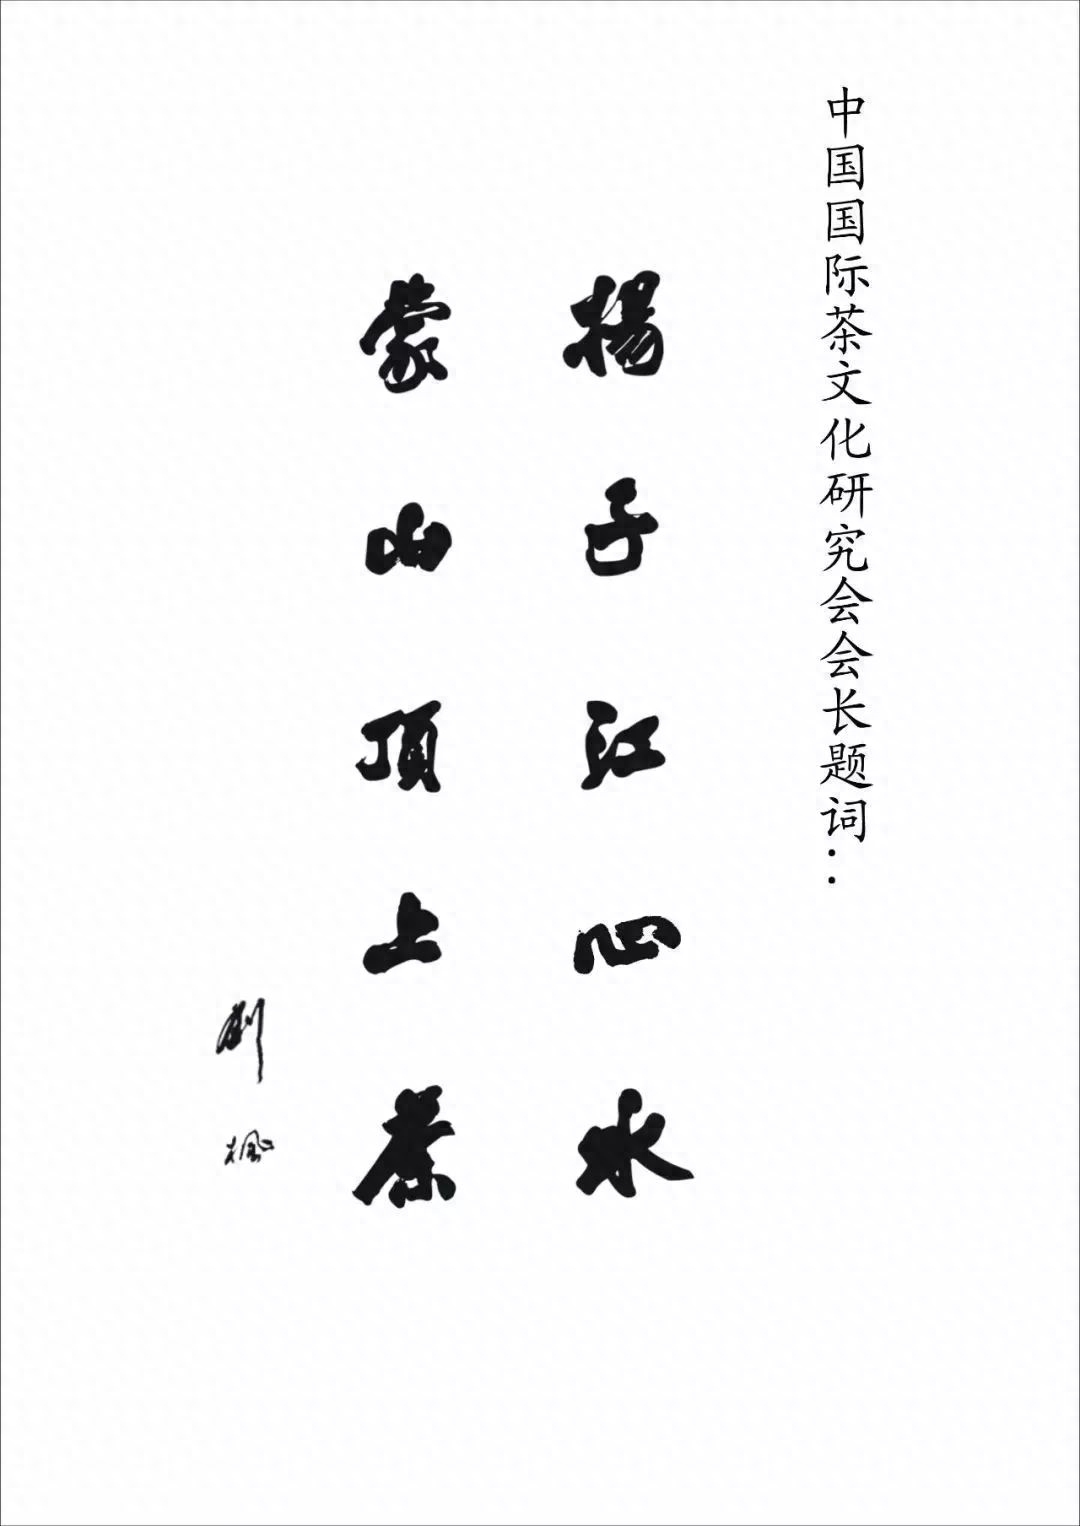 中国国际茶文化研究会会长题词：
揚子江心水
蒙山頂上茶
刘枫